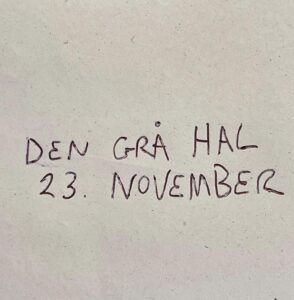 DEN GRÅ HAL
23. NOVEMBER